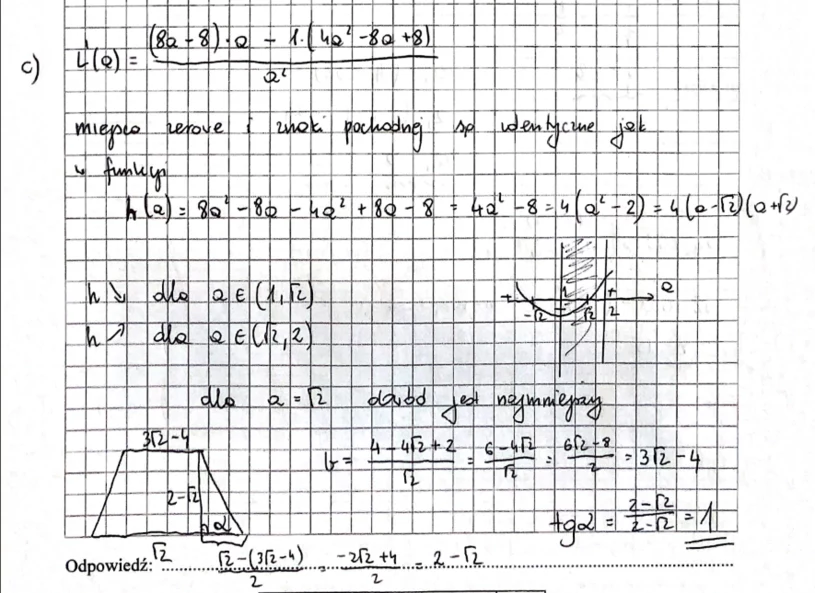 c) L'(a) = \frac{(8a-8)·a - 1·(4a² - 8a + 8)}{a²}
miejsca zerowe i znaki pochodnej są identyczne jak
w funkcji
h(a) = 8a² - 8a - 4a² + 8a - 8 = 4a² - 8 = 4(a² - 2) = 4(a-√2)(a+√2)
+ -√2 1 √2 + 2 a
h ↘ dla a ∈ (1, √2)
h ↗ dla a ∈ (√2, 2)
dla a = √2 obwód jest najmniejszy
3√2-4
b = \frac{4 - 4√2 + 2}{√2} = \frac{6 - 4√2}{√2} = \frac{6√2 - 8}{2} = 3√2 - 4
2-√2
α
tgα = \frac{2-√2}{2-√2} = 1
Odpowiedź: √2 \frac{√2-(3√2-4)}{2} = \frac{-2√2+4}{2} = 2-√2